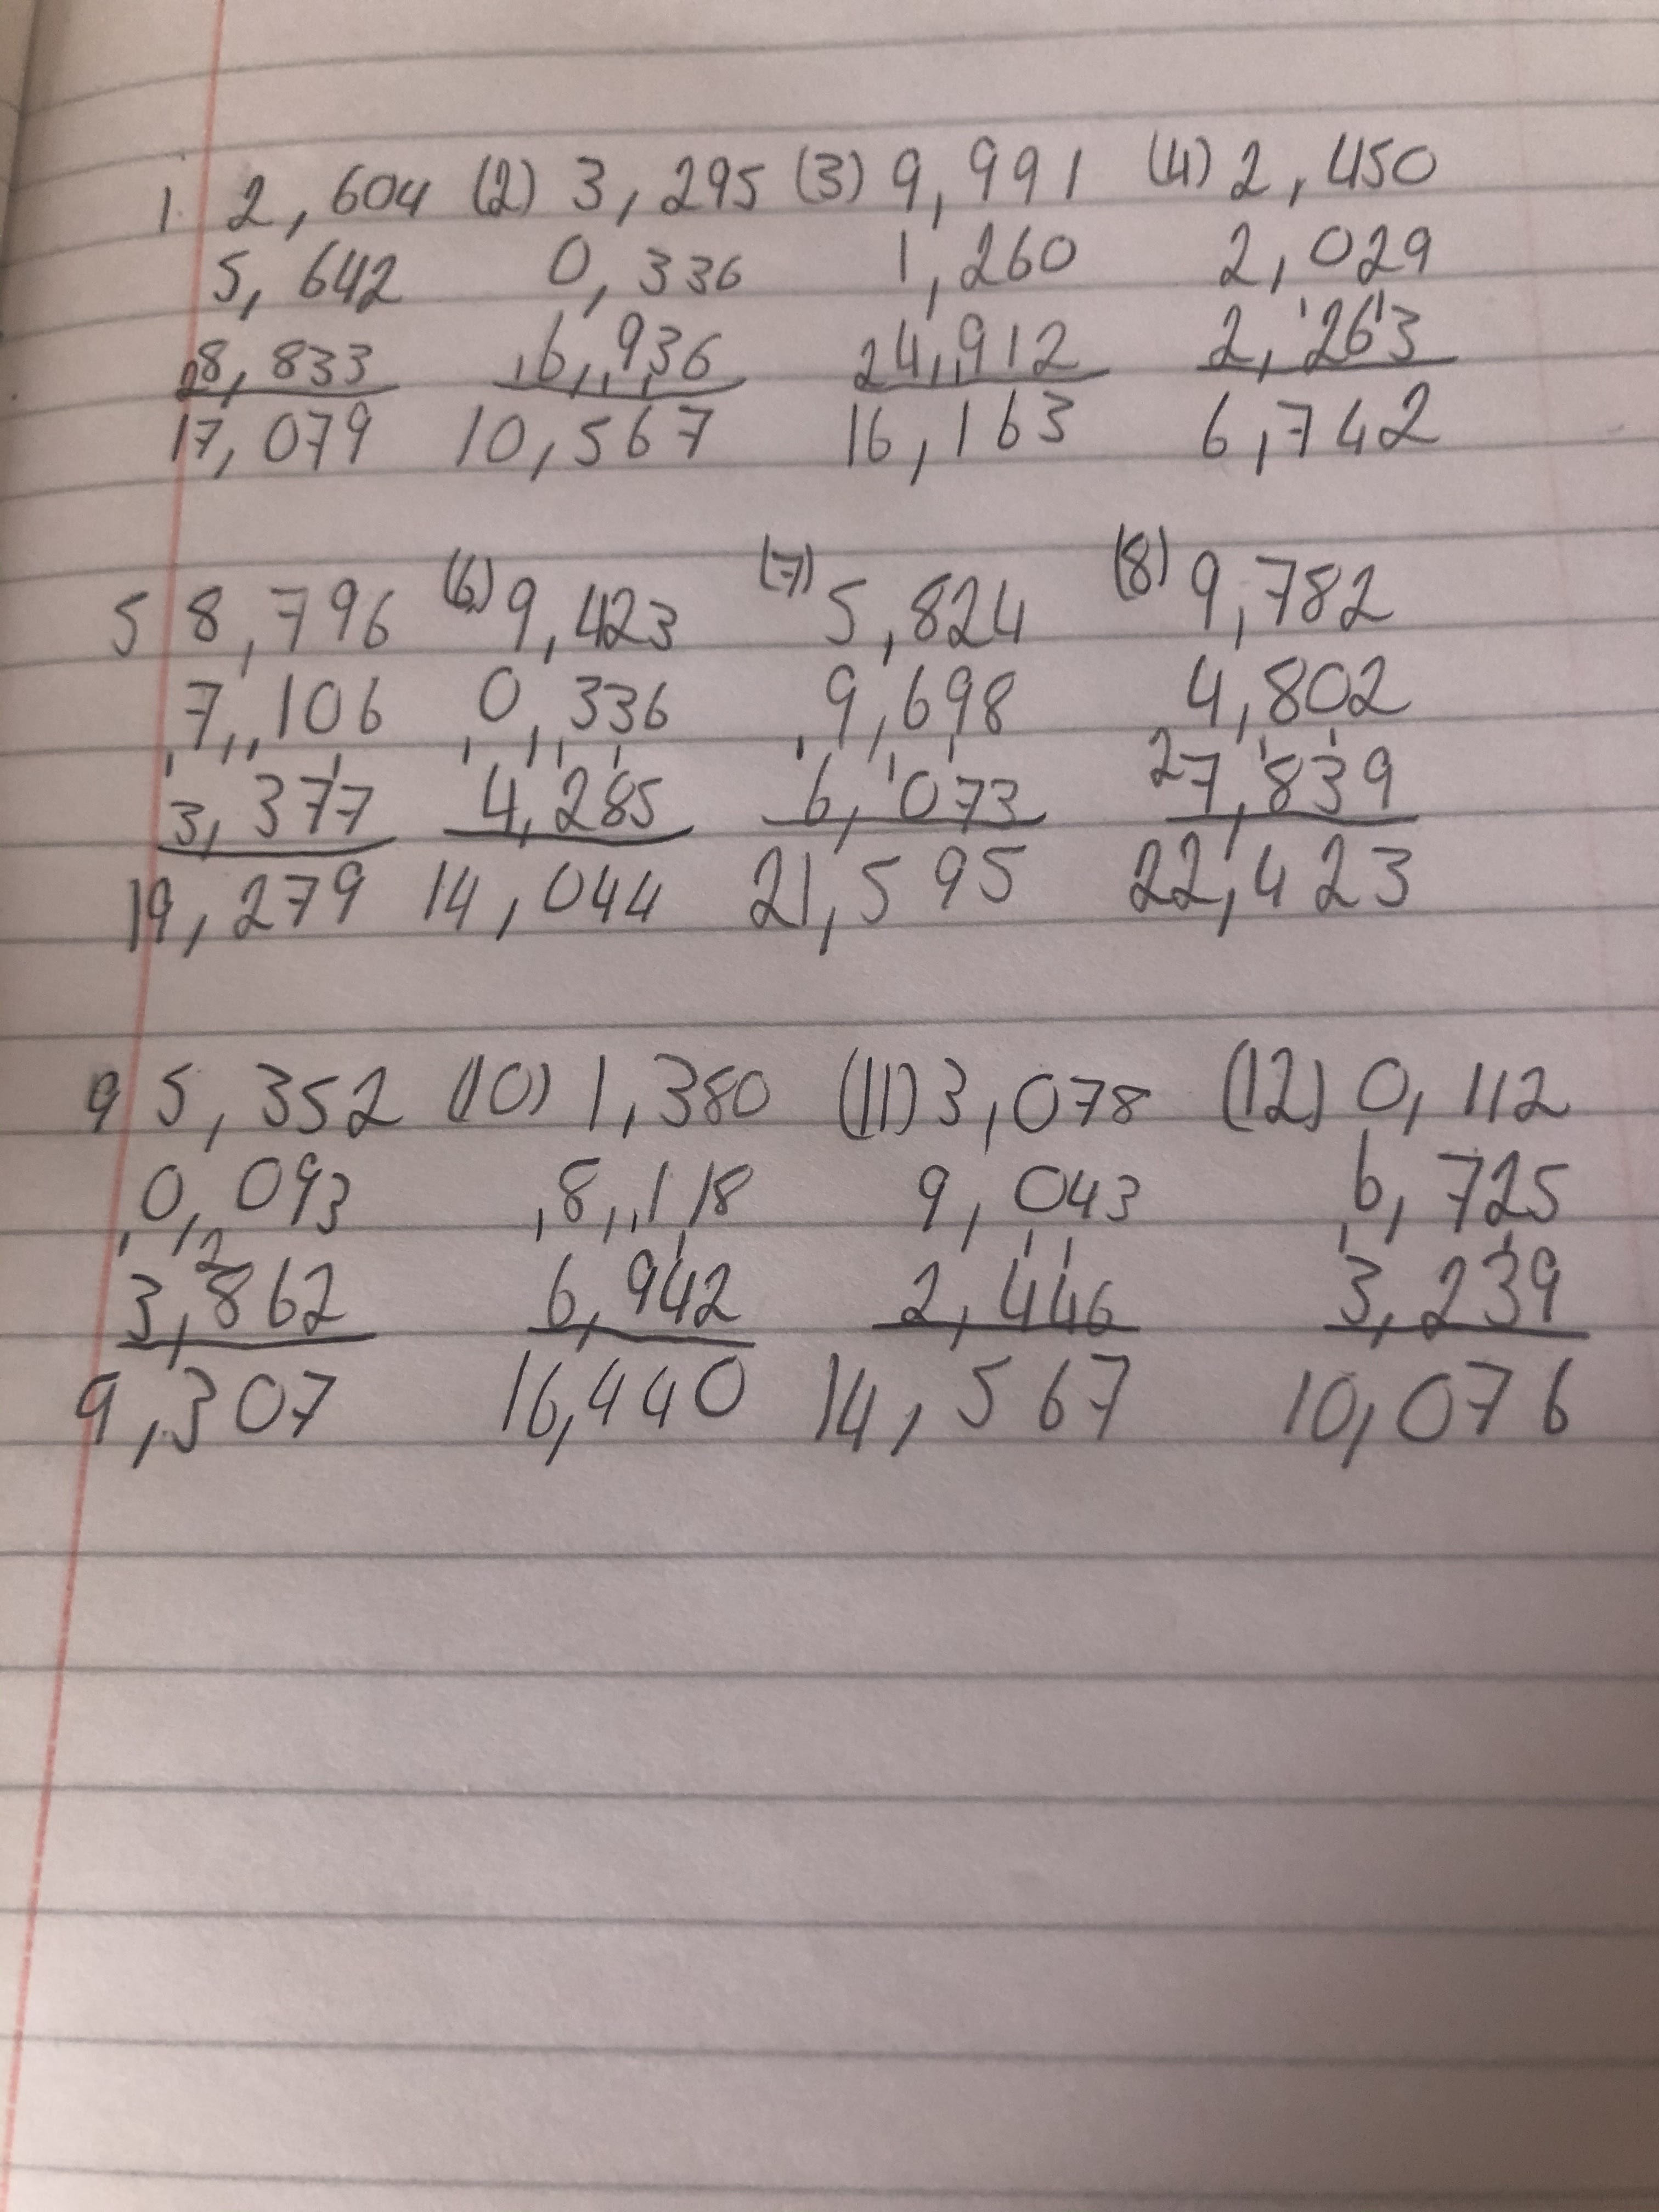 1 2,604 (2) 3,295 (3) 9,991 (4) 2,450
5,642 0,336 1,260 2,029
8,833 6,936 4,912 2,263
17,079 10,567 16,163 6,742
5 8,796 (6) 9,423 (7) 5,824 (8) 9,782
7,106 0,336 9,698 4,802
3,377 4,285 6,073 7,839
19,279 14,044 21,595 22,423
9 5,352 (10) 1,380 (11) 3,078 (12) 0,112
0,093 8,118 9,043 6,725
3,862 6,942 2,446 3,239
9,307 16,440 14,567 10,076